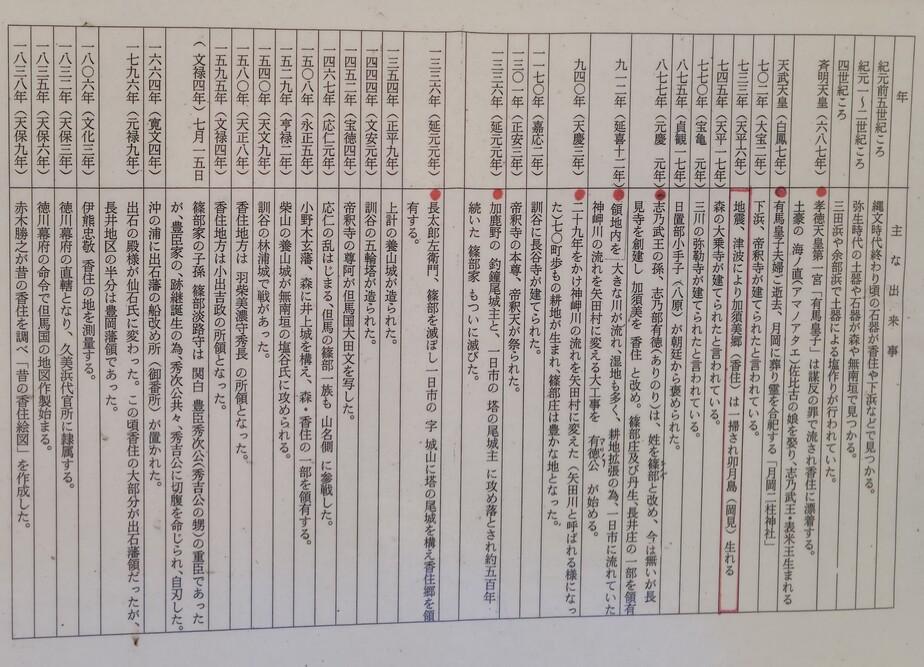 年　主な出来事
紀元前五世紀ころ　縄文時代終わり頃の石器が香住や下浜などで見つかる。
紀元一～二世紀ころ　弥生時代の土器や石器が森や無南垣で見つかる。
四世紀ころ　三田浜や余部浜で土器による塩作りが行われていた。
斉明天皇（六八七年）　孝徳天皇第一宮「有馬皇子」は謀反の罪で流され香住に漂着する。
土豪の 海ノ直（アマノアタエ）佐比古の娘を娶り、志乃武王・表米王生まれる
天武天皇（白鳳七年）　有馬皇子夫婦ご逝去、月岡に葬り霊を合祀する「月岡二柱神社」
七〇二年（大宝二年）　下浜、帝釈寺が建てられたと言われている。
七三三年（天平六年）　地震、津波により加須美郷（香住）は一掃され卯月島（岡見）生れる
七四五年（天平一七年）　森の大乗寺が建てられたと言われている。
七七〇年（宝亀 元年）　三川の弥勒寺が建てられたと言われている。
八七五年（貞観一七年）　日置部小手子（八原）が朝廷から褒められた。
八七七年（元慶 元年）　志乃武王の孫、志乃部有徳（ありのり）は、姓を篠部と改め、今は無いが長
見寺を創建し 加須美を 香住 と改め。篠部庄及び丹生、長井庄の一部を領有
九一二年（延喜十二年）　領地内を 大きな川が流れ、湿地も多く、耕地拡張の為、一日市に流れていた
神岬川の流れを矢田村に変える大工事を 有徳公 が始める。
九四〇年（天慶三年）　二十九年をかけ神岬川の流れを矢田村に変えた（矢田川と呼ばれる様になっ
た）七〇町歩もの耕地が生まれ、篠部庄は豊かな地となった。
一一七〇年（嘉応二年）　訓谷に長谷寺が建てられた。
一三〇一年（正安三年）　帝釈寺の本尊、帝釈天が祭られた。
一三三六年（延元元年）　加磨野の釣鐘尾城主と、一日市の 塔の尾城主 に攻め落とされ約五百年
続いた 篠部家 もついに滅びた。
一三三六年（延元元年）　長太郎左衛門、篠部を滅ぼし一日市の 字 城山に塔の尾城を構え香住郷を領
有する。
一三五四年（正平九年）　上計の養山城が造られた。
一四四四年（文安元年）　訓谷の五輪塔が造られた。
一四五二年（宝徳四年）　帝釈寺の尊阿が但馬国大田文を写した。
一四六七年（応仁元年）　応仁の乱はじまる、但馬の篠部一族も 山名側 に参戦した。
一五〇八年（永正五年）　小野木玄蕃、森に井上城を構え、森・香住の一部を領有する。
一五二九年（亨禄二年）　柴山の養山城が無南垣の塩谷氏に攻められる。
一五四〇年（天文九年）　訓谷の林浦城で戦があった。
一五八〇年（天正八年）　香住地方は 羽柴美濃守秀長 の所領となった。
一五九五年（文禄四年）　香住地方は小出吉政の所領となった。
（文禄四年）七月一五日　篠部家の子孫 篠部淡路守は 関白 豊臣秀次公（秀吉公の甥）の重臣であった
が、豊臣家の、跡継誕生の為、秀次公共々、秀吉公に切腹を命じられ、自刃した。
一六六四年（寛文四年）　沖の浦に出石藩の船改め所（御番所）が置かれた。
一七九六年（元禄九年）　出石の殿様が仙石氏に変わった。この頃香住の大部分が出石藩領だったが、
長井地区の半分は豊岡藩領であった。
一八〇六年（文化三年）　伊能忠敬 香住の地を測量する。
一八三二年（天保三年）　徳川幕府の直轄となり、久美浜代官所に隷属する。
一八三五年（天保六年）　徳川幕府の命令で但馬国の地図作製始まる。
一八三八年（天保九年）　赤木勝之が昔の香住を調べ「昔の香住絵図」を作成した。